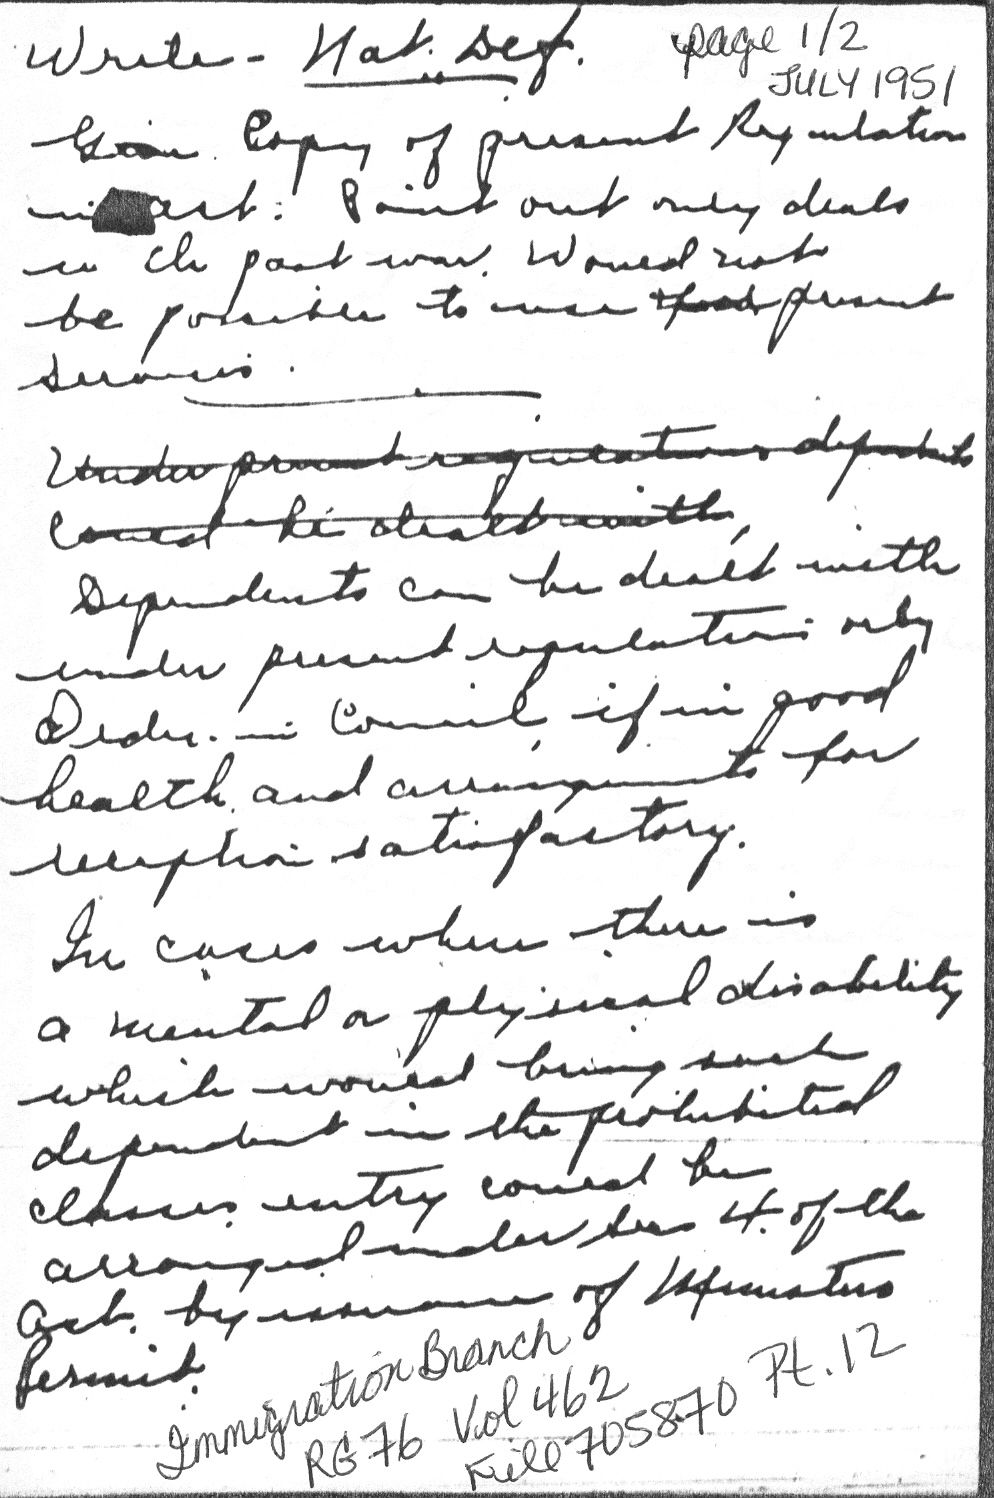 Write - Nat. Def.
page 1/2
JULY 1951
Given Copy of present Regulation
in act: Point out only deals
in the past war. Would not
be possible to use present
Services.
Under present regulations dependents
Could be dealt with,
Dependents can be dealt with
under present regulations only
Order-in Council, if in good
health, and arrangements for
reception satisfactory.
In cases where there is
a mental or physical disability
which would bring such
dependent in the prohibited
classes, entry could be
arranged under Sec 4. of the
Act. by issuance of Ministers
Permit.
Immigration Branch
RG 76 Vol 462
File 705870 Pt. 12